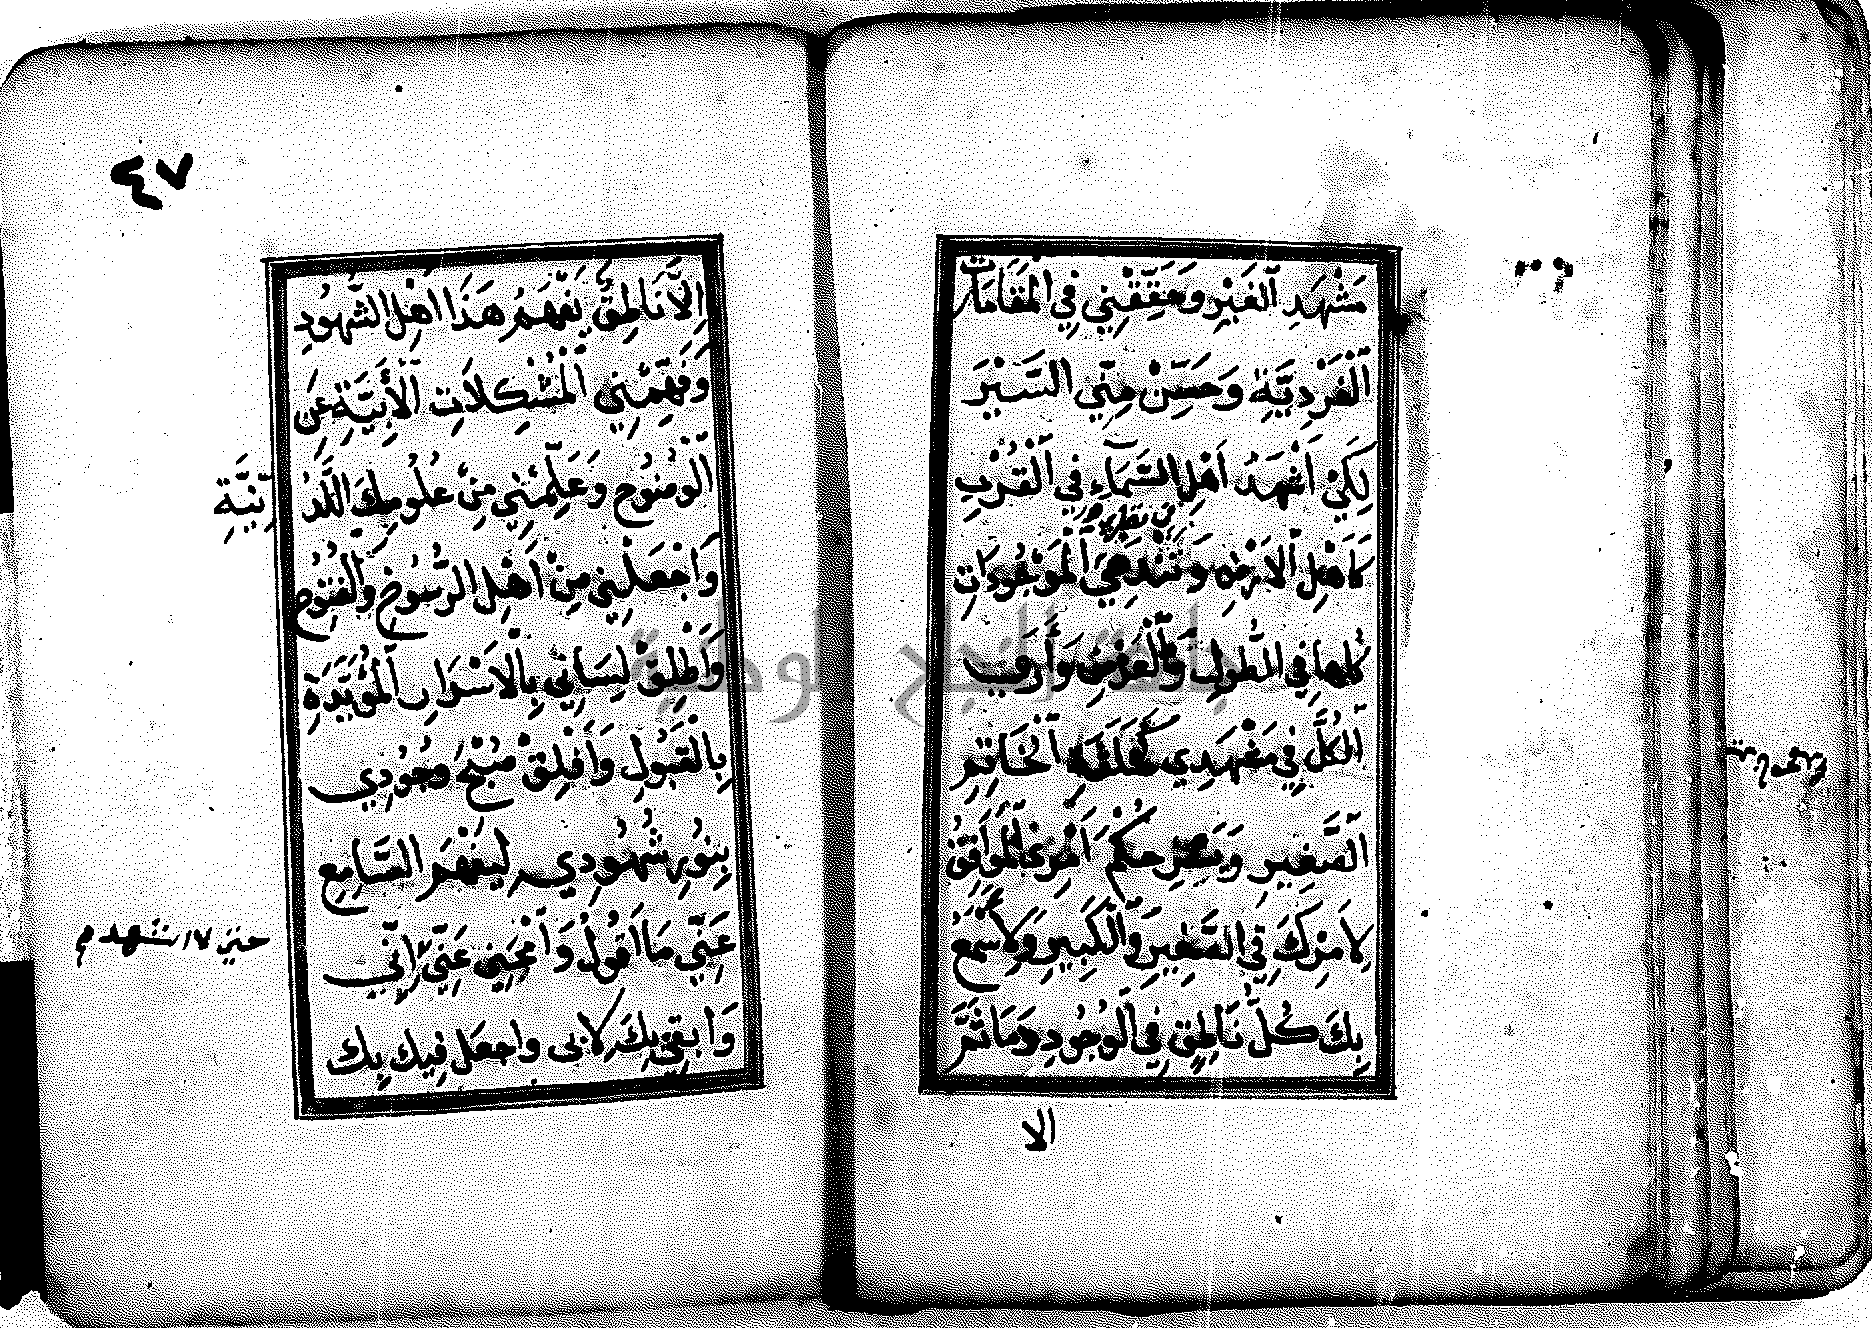 مَشْهَدِ الْغَيْرِ وَحَقِّقْنِي فِي الْمَقَامَاتِ
الْفَرْدِيَّةِ وَحَسِّنْ مِنِّي السَّيْرَ
لِكَيْ أَشْهَدَ أَهْلَ السَّمَاءِ فِي الْقُرْبِ
كَأَهْلِ الْأَرْضِ وَتَنْدَمِجَ الْمَوْجُودَاتِ
كلها فِي الطُّولِ وَالْعَرْضِ وَأَرَى
الْكُلَّ فِي مَشْهَدِي كَحَلْقَةِ الْخَاتِمِ
الصَّغِيرِ وَيَصِيرَ حُكْمُ
لِأَمْرِكَ فِي الصَّغِيرِ وَالْكَبِيرِ وَلِأَسْمَعَ
بِكَ كُلَّ نَاطِقٍ فِي الْوُجُودِ وَمَا ثَمَّ
الا
٤٧
إِلَّا نَاطِقٌ يَفْهَمُ هَذَا أَهْلُ الشُّهُودِ
وَفَهِّمْنِي الْمُشْكِلَاتِ الْأَبِيَّةَ عَنِ
الْوُضُوحِ وَعَلِّمْنِي مِنْ عُلُومِكَ اللَّدُنِيَّةِ
وَاجْعَلْنِي مِنْ أَهْلِ الرُّسُوخِ وَالْفُتُوحِ
وَأَطْلِقْ لِسَانِي بِالْأَسْرَارِ الْمُؤَيَّدَةِ
بِالْقَبُولِ وَأَفْلِقْ صُبْحَ وُجُودِي
بِنُورِ شُهُودِي لِيَفْهَمَ السَّامِعُ
عَنِّي مَا أَقُولُ وَامْحَنِي عَنِّي إِنِّي
وَابقني بِكَ لا بى واجعل فيك بك